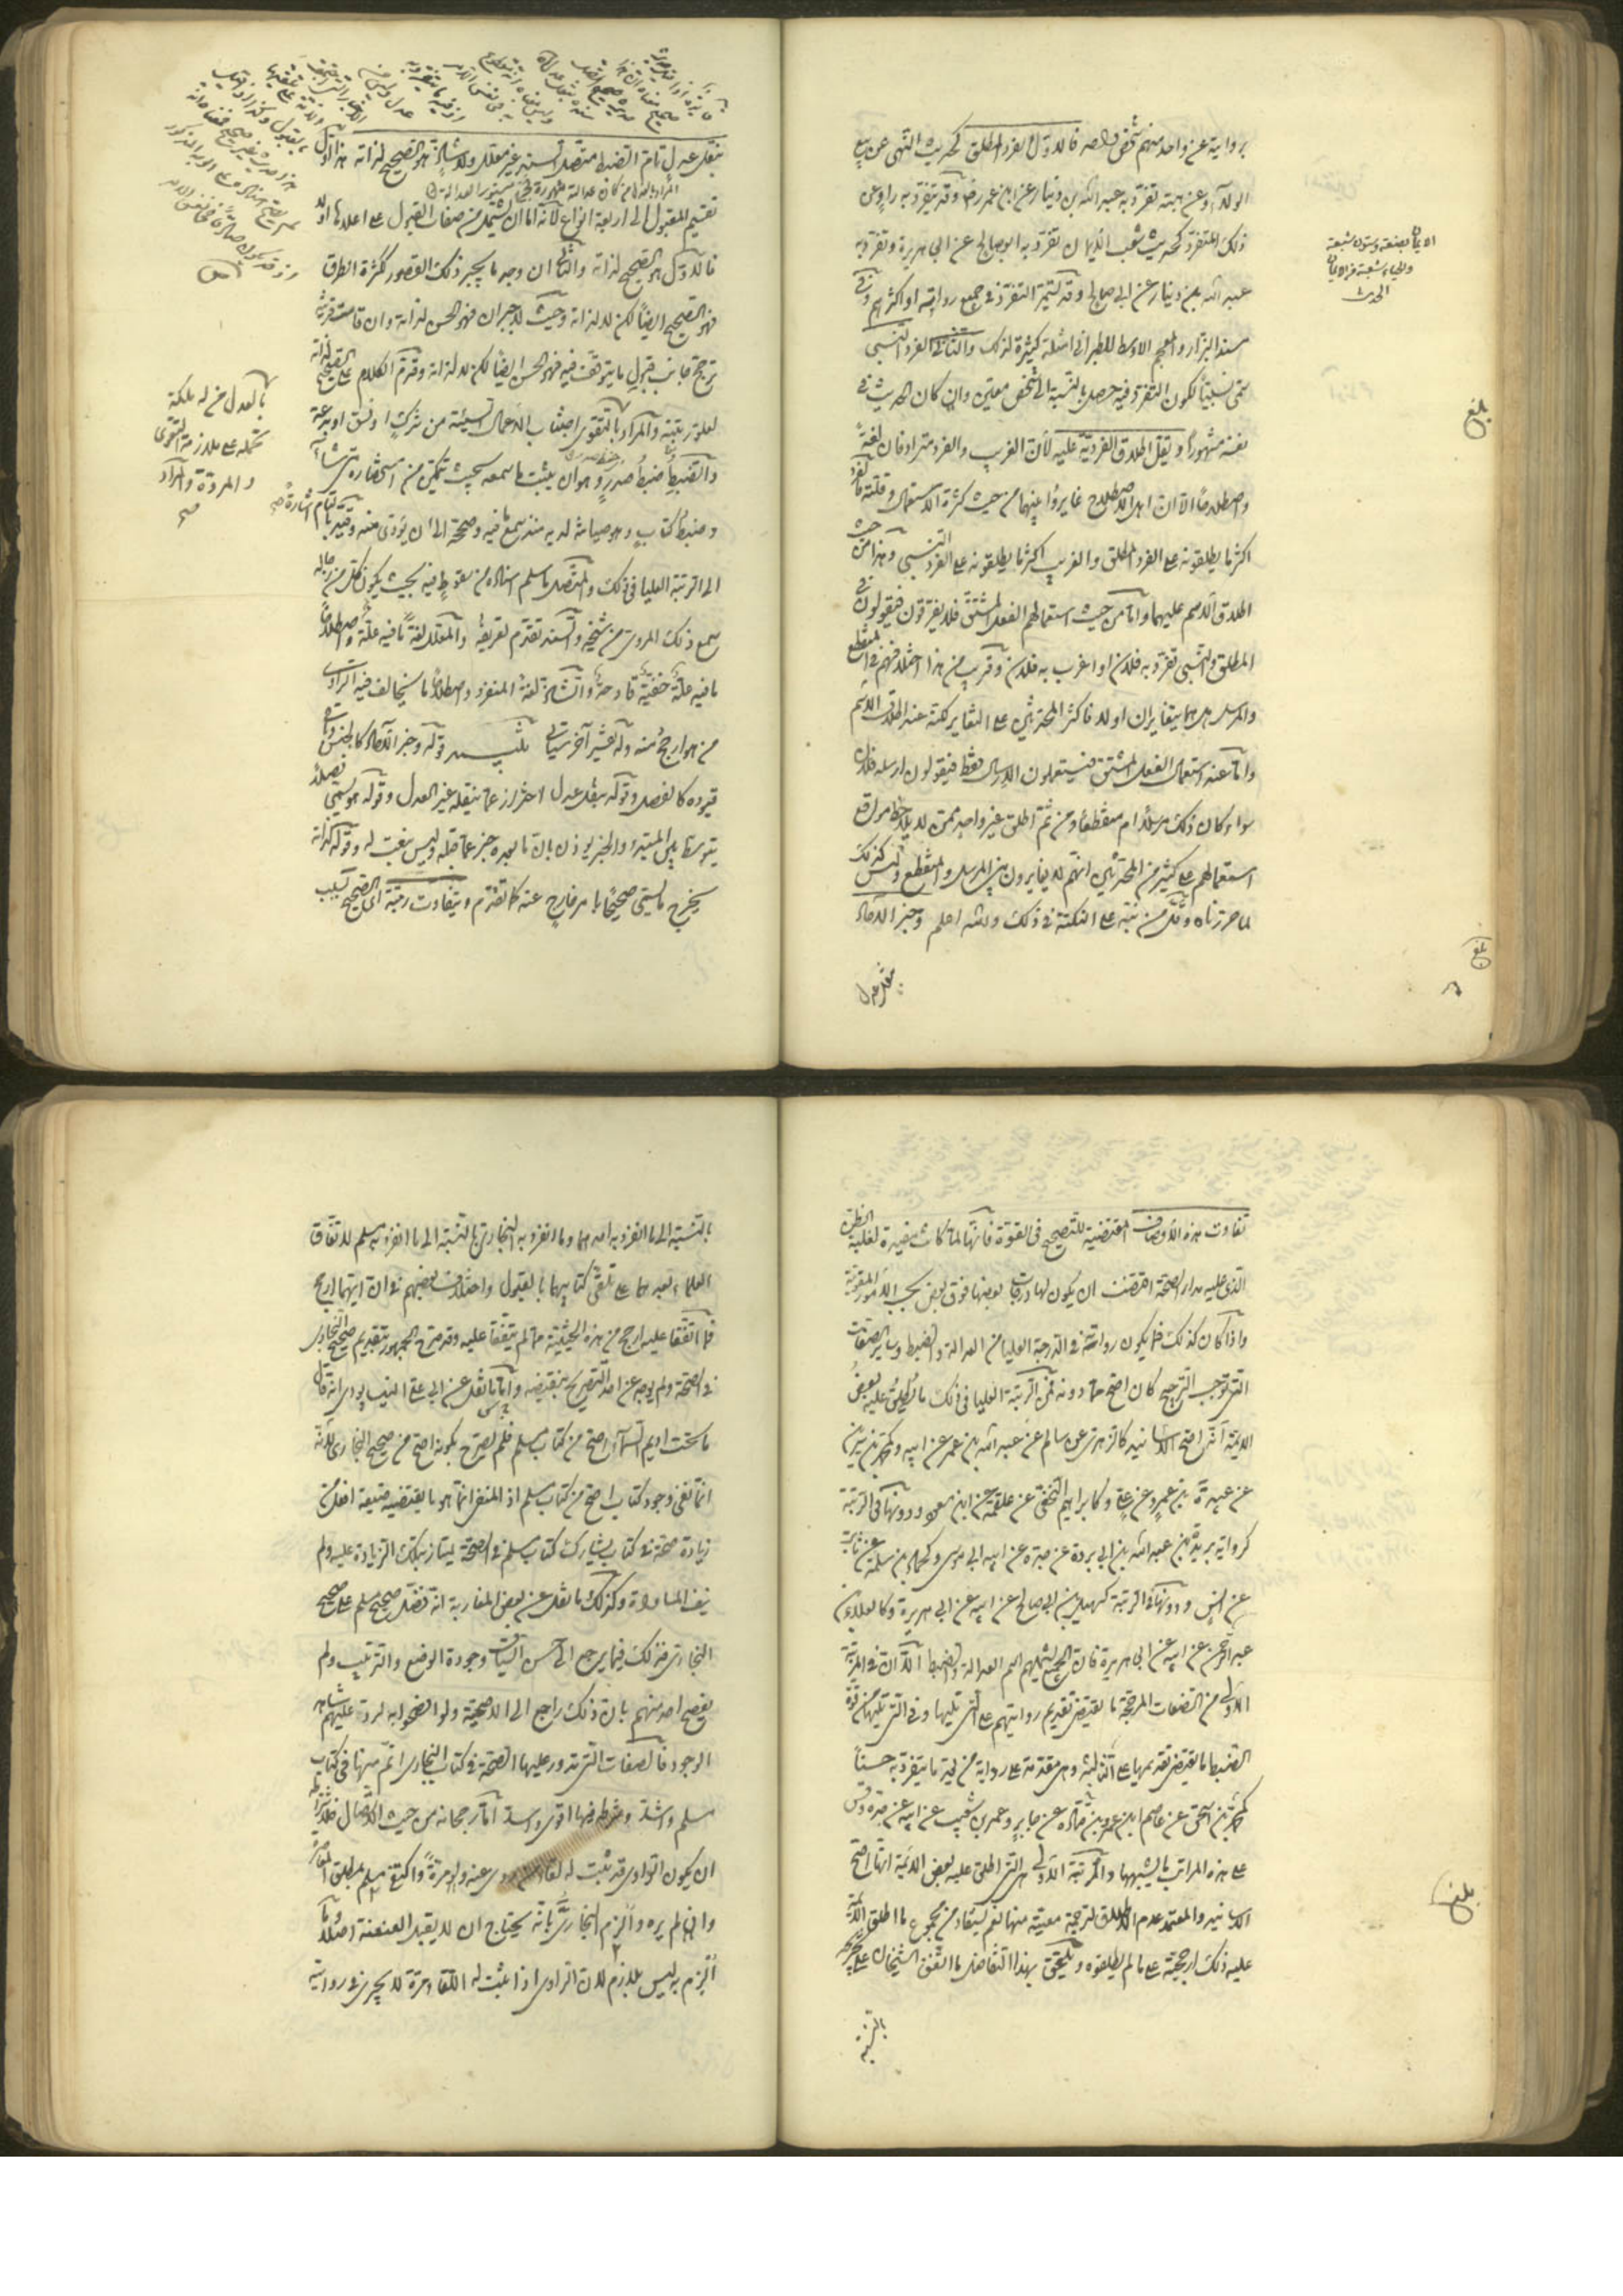 بروايته عن واحد منهم شخص واحد فالاول الفرد المطلق كحديث النهى عن بيع
الولاء وعن هبته تفرد به عبد الله بن دينار عن ابن عمر رض وقد يتفرد به راو عن
ذلك المتفرد كحديث شعب الايمان تفرد به ابو صالح عن ابى هريرة وتفرد به
عبد الله بن دينار عن ابى صالح وقد يستمر التفرد فى جميع رواته او اكثرهم وفى
مسند البزار والمعجم الاوسط للطبرانى امثلة كثيرة لذلك والثانى الفرد النسبى
سمى نسبيا لكون التفرد فيه حصل بالنسبة الى شخص معين وان كان الحديث فى
نفسه مشهورا ويقل اطلاق الفردية عليه لان الغريب والفرد مترادفان لغة
واصطلاحا الا ان اهل الاصطلاح غايروا بينهما من حيث كثرة الاستعمال وقلته فالفرد
اكثر ما يطلقونه على الفرد المطلق والغريب اكثر ما يطلقونه على الفرد النسبى وهذا من حيث
اطلاق الاسم عليهما واما من حيث استعمالهم الفعل المشتق فلا يفرقون فيقولون فى
المطلق والنسبى تفرد به فلان او اغرب به فلان وقريب من هذا اختلافهم فى المنقطع
والمرسل هل هما يتغايران او لا فاكثر المحدثين على التغاير لكنه عند اطلاق الاسم
واما عند استعمال الفعل المشتق فيستعملون الارسال فقط فيقولون ارسله فلان
سواء كان ذلك مرسلا ام منقطعا ومن ثم اطلق غير واحد ممن لا يلاحظ مواقع
استعمالهم على كثير من المحدثين انهم لا يغايرون بين المرسل والمنقطع وليس كذلك
لما حررناه وقل من نبه على النكتة فى ذلك والله اعلم وخبر الآحاد
بنقل عدل
الايمان بضعة وستون شعبة
والحياء شعبة من الايمان
الحديث
بلغ
بلغ
بنقل عدل تام الضبط متصل السند غير معلل ولا شاذ هو الصحيح لذاته هذا اول
تقسيم المقبول الى اربعة انواع لانه اما ان يشتمل من صفات القبول على اعلاها او لا
فالاول هو الصحيح لذاته والثانى ان وجد ما يجبر ذلك القصور ككثرة الطرق
فهو الصحيح ايضا لكن لا لذاته وحيث لا جبران فهو الحسن لذاته وان قامت قرينة
ترجح جانب قبول ما يتوقف فيه فهو الحسن ايضا لكن لا لذاته وقدم الكلام على الصحيح لذاته
لعلو رتبته والمراد بالتقوى اجتناب الاعمال السيئة من شرك او فسق او بدعة
والضبط ضبط صدر وهو ان يثبت ما سمعه بحيث يتمكن من استحضاره متى شاء
وضبط كتاب وهو صيانته لديه منذ سمع فيه وصححه الى ان يؤدى منه وقيد بالتام اشارة
الى الرتبة العليا فى ذلك والمتصل ما سلم اسناده من سقوط فيه بحيث يكون كل من رجاله
سمع ذلك المروى من شيخه والسند تقدم تعريفه والمعلل لغة ما فيه علة واصطلاحا
ما فيه علة خفية قادحة والشاذ لغة المنفرد واصطلاحا ما يخالف فيه الراوى
من هو ارجح منه وله تفسير آخر سيأتى تنبيه قوله وخبر الآحاد كالجنس وباقى
قيوده كالفصل وقوله بنقل عدل احتراز عما ينقله غير العدل وقوله هو يسمى فصلا
يتوسط بين المبتدا والخبر يوذن بان ما بعده خبر عما قبله وليس بنعت له وقوله لذاته
يخرج ما يسمى صحيحا بامر خارج عنه كما تقدم وتتفاوت رتبته اى الصحيح بسبب
بالعدل من له ملكة
تحمله على ملازمة التقوى
والمروة والمراد
صح
تفاوت هذه الاوصاف المقتضية للتصحيح فى القوة فانها لما كانت مفيدة لغلبة الظن
الذى عليه مدار الصحة اقتضت ان يكون لها درجات بعضها فوق بعض بحسب الامور المقوية
واذا كان كذلك فما يكون رواته فى الدرجة العليا من العدالة والضبط وساير الصفات
التى توجب الترجيح كان اصح مما دونه فمن الرتبة العليا فى ذلك ما اطلق عليه بعض
الائمة انه اصح الاسانيد كالزهرى عن سالم عن عبد الله بن عمر عن ابيه وكمحمد بن سيرين
عن عبيدة بن عمرو عن على وكابراهيم النخعى عن علقمة عن ابن مسعود ودونها فى الرتبة
كرواية بريد بن عبد الله بن ابى بردة عن جده عن ابيه ابى موسى وكحماد بن سلمة عن ثابت
عن انس ودونها فى الرتبة كسهيل بن ابى صالح عن ابيه عن ابى هريرة وكالعلاء بن
عبد الرحمن عن ابيه عن ابى هريرة فان الجميع يشملهم اسم العدالة والضبط الا ان فى المرتبة
الاولى من الصفات المرجحة ما يقتضى تقديم روايتهم على التى تليها وفى التى تليها من قوة
الضبط ما يقتضى تقديمها على الثالثة وهى مقدمة على رواية من يعد ما يتفرد به حسنا
كمحمد بن اسحق عن عاصم ابن عمر بن قتادة عن جابر وعمرو بن شعيب عن ابيه عن جده وقس
على هذه المراتب ما يشبهها والمرتبة الاولى هى التى اطلق عليه بعض الائمة انها اصح
الاسانيد والمعتمد عدم الاطلاق لترجمة معينة منها نعم يستفاد من مجموع ما اطلق الائمة
عليه ذلك ارجحيته على ما لم يطلقوه ويلتحق بهذا التفاضل ما اتفق الشيخان على تخريجه
بالنسبة
بلغ
بالنسبة الى ما انفرد به احدهما وما انفرد به البخارى بالنسبة الى ما انفرد به مسلم لاتفاق
العلماء بعدهما على تلقى كتابيهما بالقبول واختلاف بعضهم فى ان ايهما ارجح
فما اتفقا عليه ارجح من هذه الحيثية مما لم يتفقا عليه وقد صرح الجمهور بتقديم صحيح البخارى
فى الصحة ولم يوجد عن احد التصريح بنقيضه واما ما نقل عن ابى على النيسابورى انه قال
ما تحت اديم السماء اصح من كتاب مسلم فلم يصرح بكونه اصح من صحيح البخارى لانه
انما نفى وجود كتاب اصح من كتاب مسلم اذ المنفى انما هو ما يقتضيه صيغة افعل من
زيادة صحة فى كتاب يشارك كتاب مسلم فى الصحة يمتاز بتلك الزيادة عليه ولم
ينف المساواة وكذلك ما نقل عن بعض المغاربة انه فضل صحيح مسلم على صحيح
البخارى فذلك فيما يرجع الى حسن السياق وجودة الوضع والترتيب ولم
يفصح احد منهم بان ذلك راجع الى الاصحية ولو افصحوا به لرد عليهم شاهد
الوجود فالصفات التى تدور عليها الصحة فى كتاب البخارى اتم منها فى كتاب
مسلم واشد وشرطه فيها اقوى واسد اما رجحانه من حيث الاتصال فلاشتراطه
ان يكون الراوى قد ثبت له لقاء من روى عنه ولو مرة واكتفى مسلم بمطلق المعاصرة
والزم البخارى بانه يحتاج ان لا يقبل العنعنة اصلا وما
الزمه به ليس بلازم لان الراوى اذا ثبت له اللقاء مرة لا يجرى فى رواياته